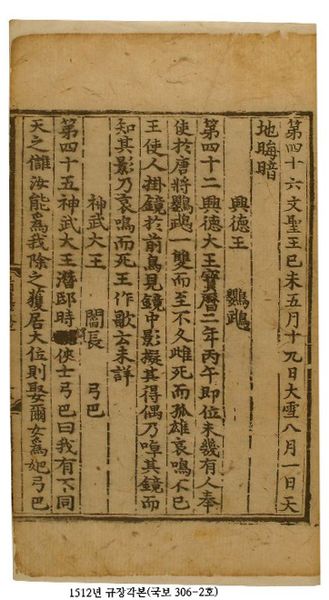 第四十六文聖王己未五月十九日大雪八月一日天
地晦暗
興德王 鸚鵡
第四十二興德大王寶曆二年丙午即位未幾有人奉
使於唐將鸚鵡一雙而至不久雌死而孤雄哀鳴不已
王使人掛鏡於前鳥見鏡中影擬其得偶乃啅其鏡而
知其影乃哀鳴而死王作歌云未詳
神武大王 閻長 弓巴
第四十五神武大王潛邸時 俠士弓巴曰我有不同
天之讎汝能爲我除之獲居大位則娶爾女爲妃弓巴
1512년 규장각본(국보 306-2호)